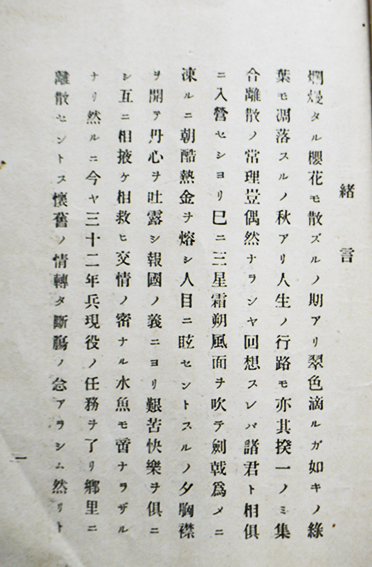 緒言
爛熳タル櫻花モ散ズルノ期アリ翠色滴ルガ如キノ綠
葉モ凋落スルノ秋アリ人生ノ行路モ亦其揆一ノミ集
合離散ノ常理豈偶然ナラシヤ回想スレバ諸君ト相俱
ニ入營セシヨリ已ニ三星霜朔風面ヲ吹テ劍戟爲メニ
凍ルニ朝酷熱金ヲ熔シ人目ニ眩セントスルノ夕胸襟
ヲ開ア丹心ヲ吐露シ報國ノ義ニヨリ艱苦快樂ヲ俱ニ
シ互ニ相扶ケ相救ヒ交情ノ密ナル水魚モ啻ナラザル
ナリ然ルニ今ヤ三十二年兵現役ノ任務ヲ了リ鄕里ニ
離散セントス懷舊ノ情轉タ斷膓ノ念アラシム然リト
一